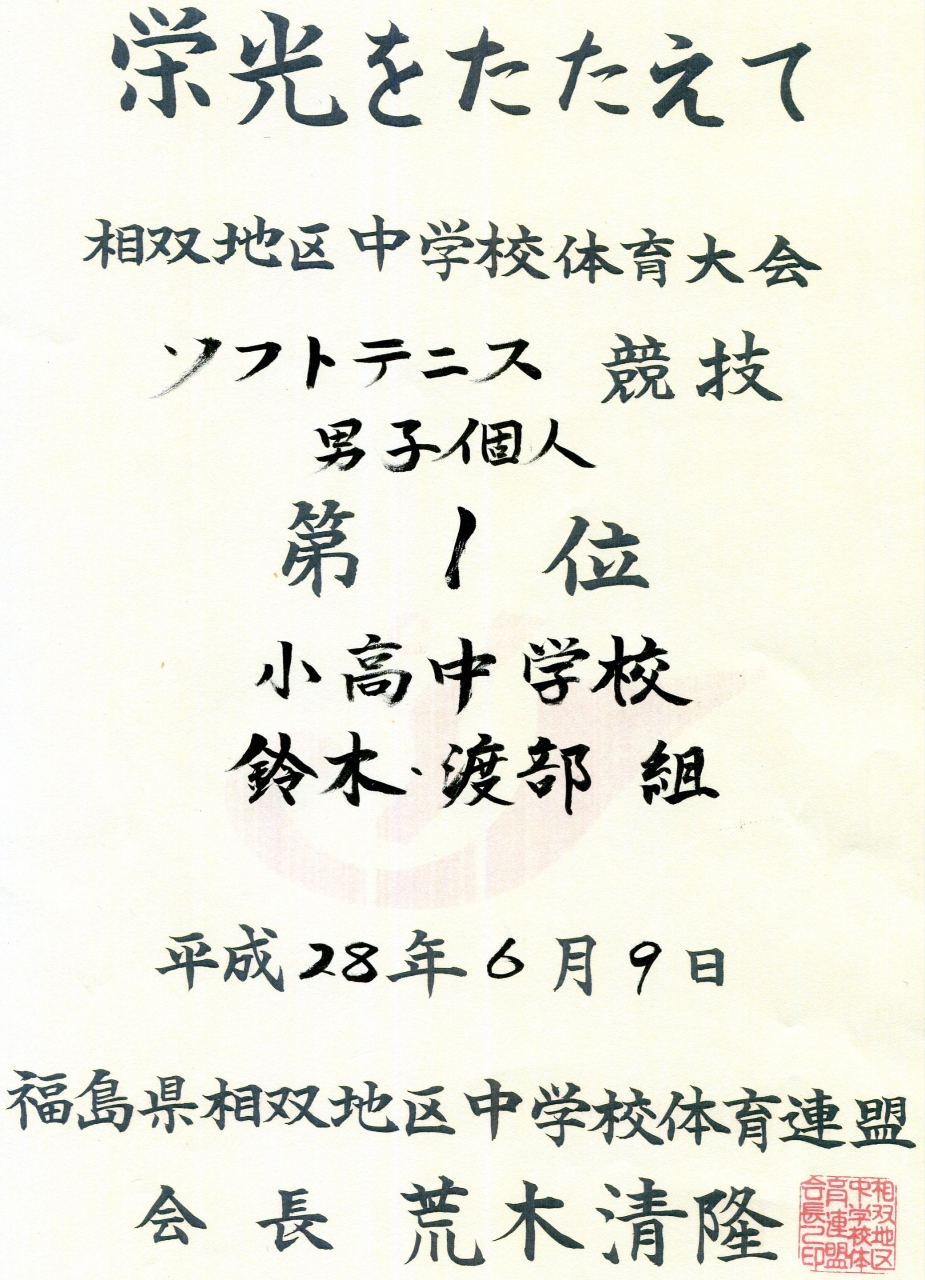 栄光をたたえて
相双地区中学校体育大会
ソフトテニス 競技
男子個人
第 1 位
小高中学校
鈴木・渡部 組
平成28年6月9日
福島県相双地区中学校体育連盟
会長 荒木清隆
相双地区
中学校体
育連盟
会長之印